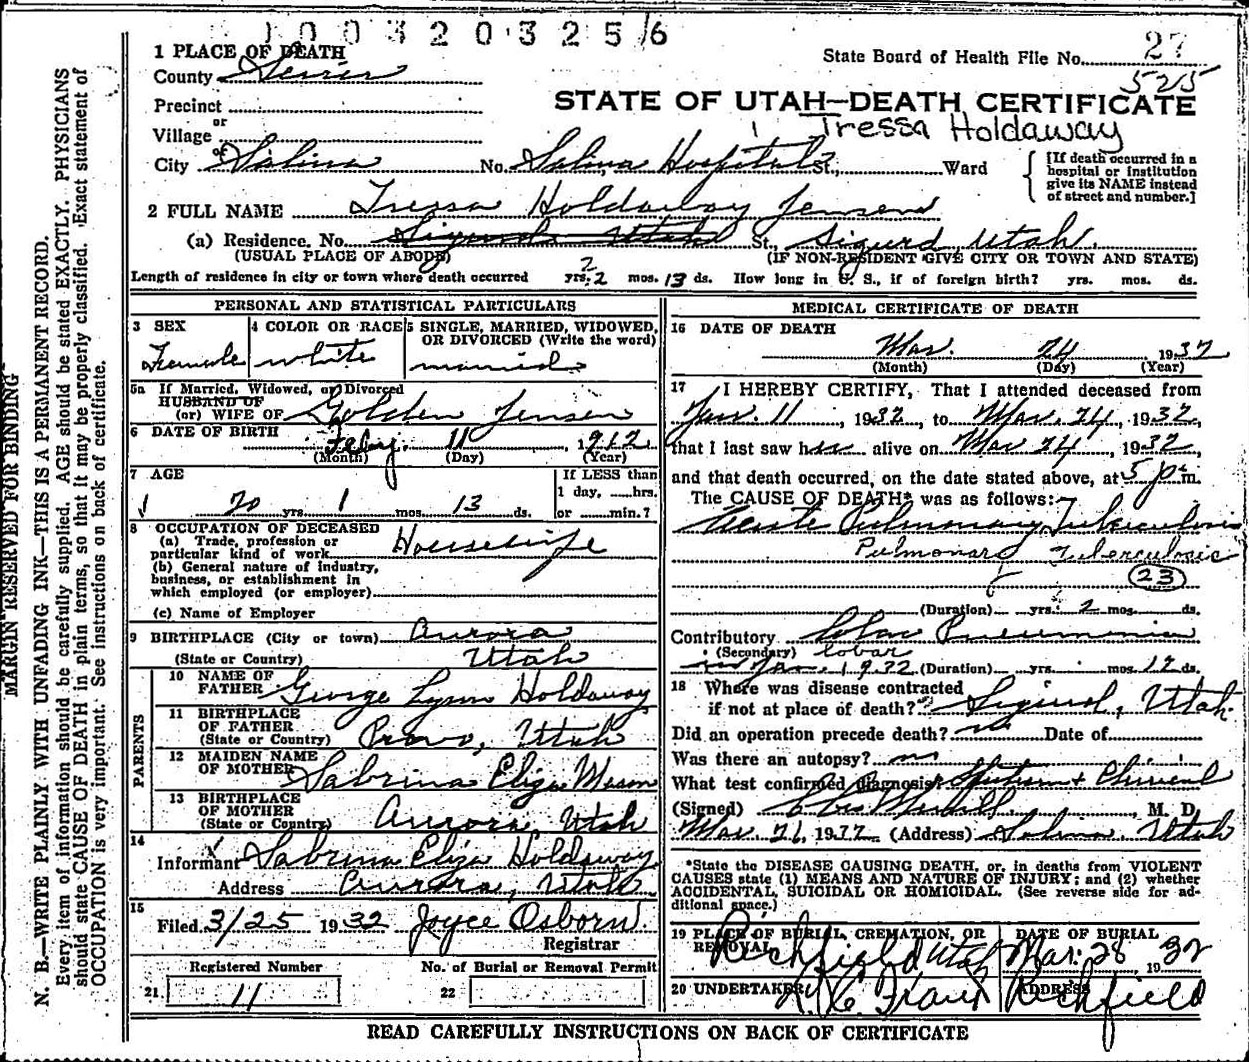 1003203256
1 PLACE OF DEATH
State Board of Health File No. 27
525
County Sevier
Precinct
or
Village
or
City Salina No. Salina Hospital St., Ward
STATE OF UTAH—DEATH CERTIFICATE
Tressa Holdaway
[If death occurred in a hospital or institution give its NAME instead of street and number.]
2 FULL NAME Tressa Holdaway Jensen
(a) Residence. No. Sigurd Utah St., Sigurd Utah.
(USUAL PLACE OF ABODE) (IF NON-RESIDENT GIVE CITY OR TOWN AND STATE)
Length of residence in city or town where death occurred yrs. 2 mos. 13 ds. How long in U. S., if of foreign birth? yrs. mos. ds.
PERSONAL AND STATISTICAL PARTICULARS
3 SEX
Female
4 COLOR OR RACE
white
5 SINGLE, MARRIED, WIDOWED, OR DIVORCED (Write the word)
married
5a If Married, Widowed, or Divorced
HUSBAND OF
(or) WIFE OF Golden Jensen
6 DATE OF BIRTH Feby. 11 1912
(Month) (Day) (Year)
7 AGE
20 yrs. 1 mos. 13 ds.
If LESS than
1 day, hrs.
or min.?
8 OCCUPATION OF DECEASED
(a) Trade, profession or
particular kind of work Housewife
(b) General nature of industry,
business, or establishment in
which employed (or employer)
(c) Name of Employer
9 BIRTHPLACE (City or town) Aurora
(State or Country) Utah
PARENTS
10 NAME OF
FATHER George Lynn Holdaway
11 BIRTHPLACE
OF FATHER
(State or Country) Provo, Utah
12 MAIDEN NAME
OF MOTHER Sabrina Eliza Mason
13 BIRTHPLACE
OF MOTHER
(State or Country) Aurora, Utah
14
Informant Sabrina Eliza Holdaway
Address Aurora, Utah
15
Filed 3/25 1932 Joyce Osborn
Registrar
Registered Number
21 11
No. of Burial or Removal Permit
22
MEDICAL CERTIFICATE OF DEATH
16 DATE OF DEATH
Mar. 24 1932
(Month) (Day) (Year)
17 I HEREBY CERTIFY, That I attended deceased from
Jan. 11, 1932, to Mar. 24, 1932,
that I last saw her alive on Mar 24, 1932,
and that death occurred, on the date stated above, at 5 p m.
The CAUSE OF DEATH* was as follows:
Acute Pulmonary Tuberculosis
Pulmonary Tuberculosis
23
(Duration) yrs. 2 mos. ds.
Contributory Lobar Pneumonia
(Secondary) lobar
in Jan. 1932 (Duration) yrs. mos. 12 ds.
18 Where was disease contracted
if not at place of death? Sigurd, Utah
Did an operation precede death? no Date of
Was there an autopsy? no
What test confirmed diagnosis? Sputum + Clinical
(Signed) M. D.
Mar 26, 1932 (Address) Salina Utah
*State the DISEASE CAUSING DEATH, or, in deaths from VIOLENT
CAUSES state (1) MEANS AND NATURE OF INJURY; and (2) whether
ACCIDENTAL, SUICIDAL OR HOMICIDAL. (See reverse side for ad-
ditional space.)
19 PLACE OF BURIAL, CREMATION, OR
REMOVAL
Richfield Utah
DATE OF BURIAL
Mar. 28, 1932
20 UNDERTAKER
ADDRESS
Richfield
READ CAREFULLY INSTRUCTIONS ON BACK OF CERTIFICATE
MARGIN RESERVED FOR BINDING
N. B.—WRITE PLAINLY WITH UNFADING INK—THIS IS A PERMANENT RECORD.
Every item of information should be carefully supplied. AGE should be stated EXACTLY. PHYSICIANS
should state CAUSE OF DEATH in plain terms, so that it may be properly classified. Exact statement of
OCCUPATION is very important. See instructions on back of certificate.